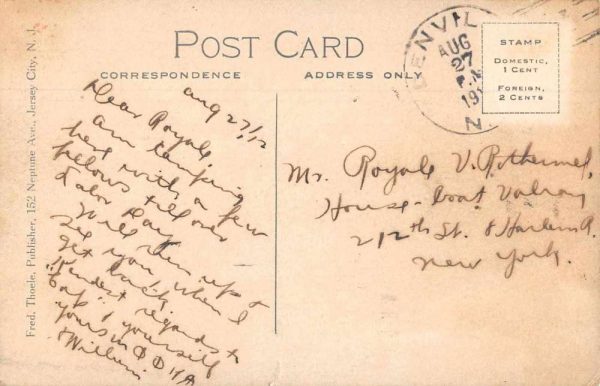 POST CARD
CORRESPONDENCE
ADDRESS ONLY
Fred. Thoele, Publisher, 152 Neptune Ave., Jersey City, N. J.
DENVIL
AUG
27
191
N
STAMP
DOMESTIC,
1 CENT
FOREIGN,
2 CENTS
Aug 27/12
Dear Royale,
am camping
here with a few
fellows till over
Labor Day.
Will run up &
see you when I
get back,
Kindest regards to
& yourself
yours in
William
Mr. Royale V. Rothermel,
House-boat
212th St. & Harlem R.
New York.